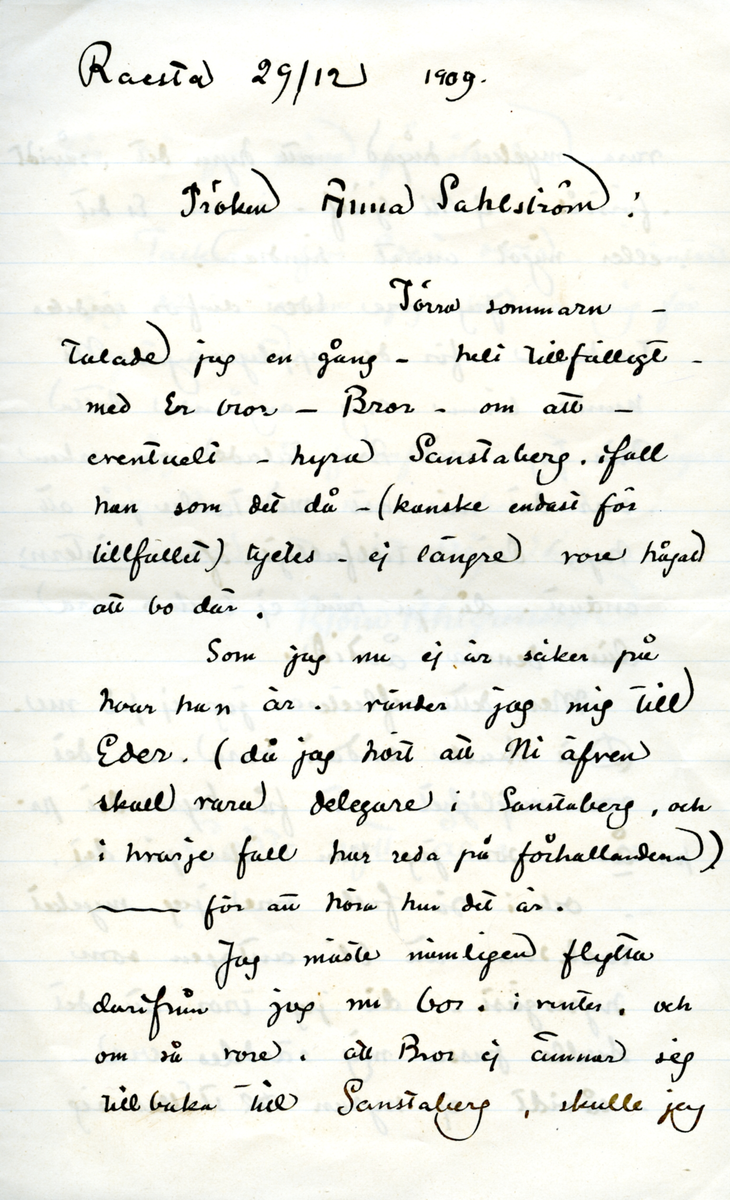 Racsta 29/12 1909.
Fröken Anna Sahlström!
Förra sommarn –
talade jag en gång – helt tillfälligt –
med Er bror – Bror – om att –
eventuelt – hyra Sanstaberg. ifall
han som det då – (kanske endast för
tillfället) tycktes – ej längre vore hågad
att bo där.
Som jag nu ej är säker på
hvar han är. vänder jag mig till
Eder. (då jag hört att Ni äfven
skall vara delegare i Sanstaberg, och
i hvarje fall har reda på förhållandena)
—— för att höra hur det är.
Jag måste nämligen flytta
därifrån jag nu bor. i vinter. och
om så vore. att Bror ej ämnar sig
tillbaka till Sanstaberg, skulle jag